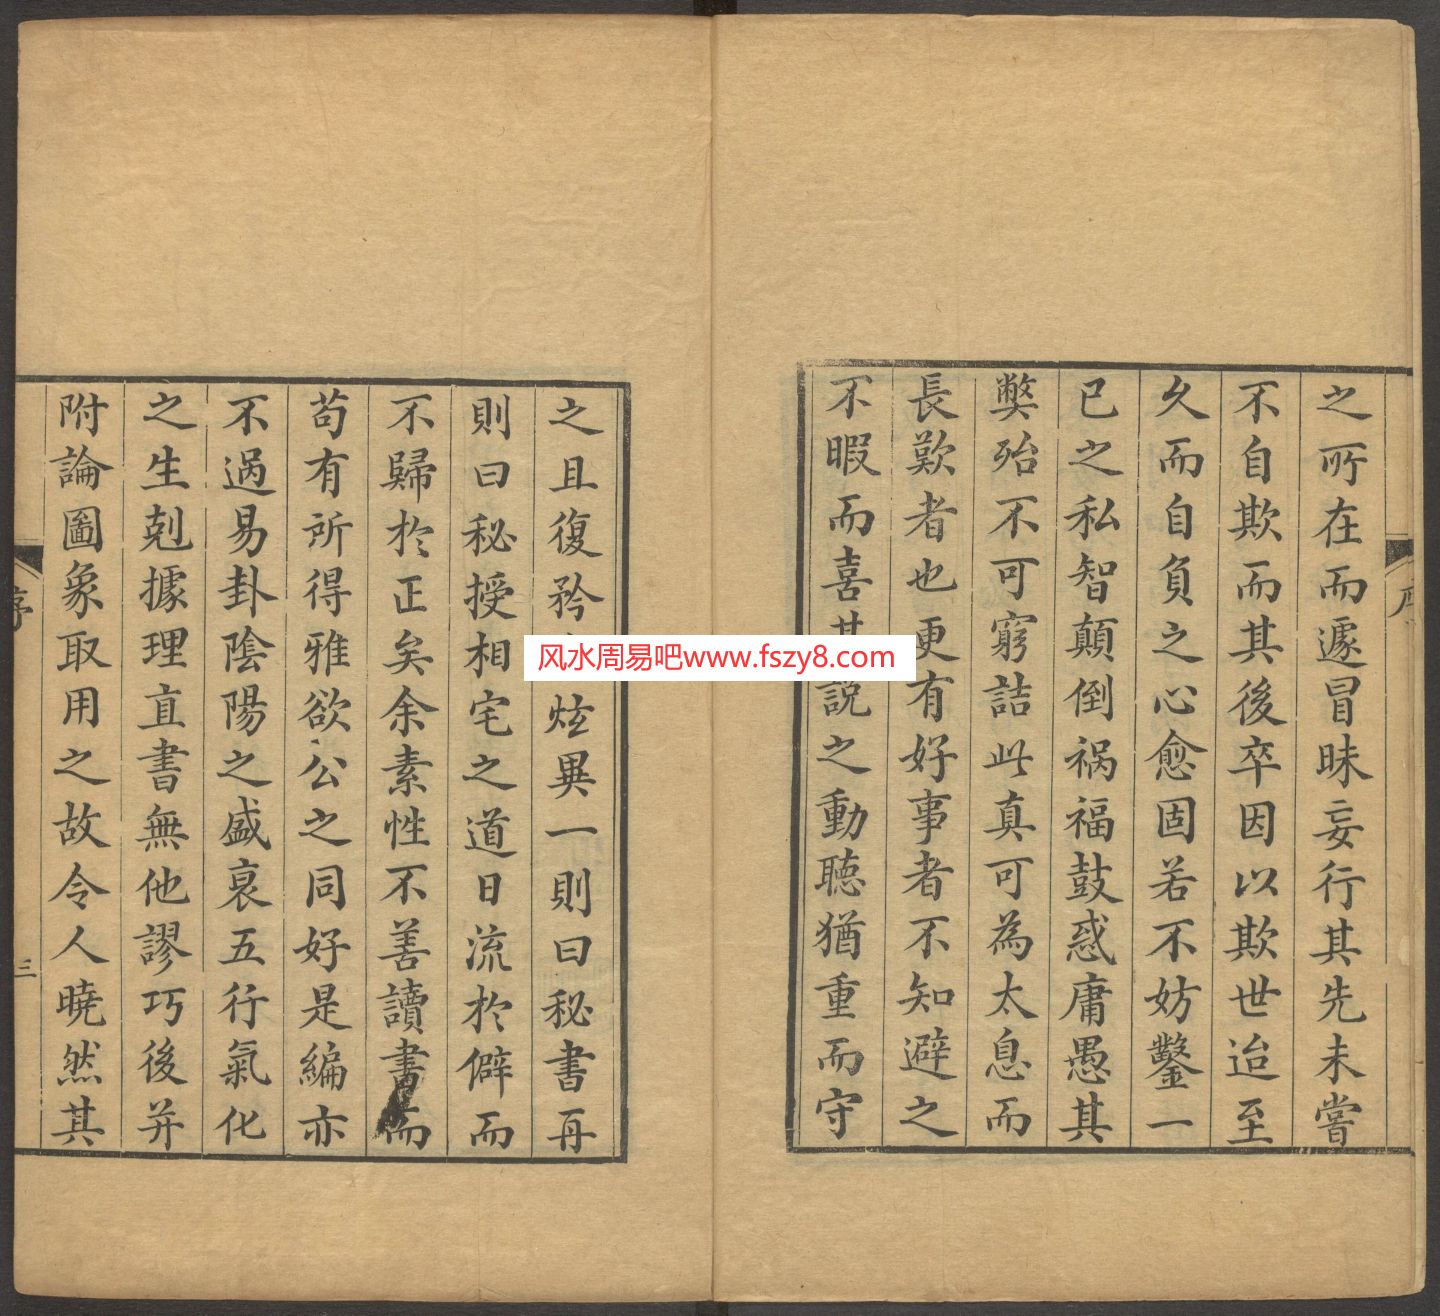 之所在而遽冒昧妄行其先未嘗
不自欺而其後卒因以欺世迨至
久而自負之心愈固若不妨鑿一
已之私智顛倒禍福鼓惑庸愚其
弊殆不可窮詰此真可為太息而
長歎者也更有好事者不知避之
不暇而喜其說之動聽猶重而守
之且復矜炫異一則曰秘書再
則曰秘授相宅之道日流於僻而
不歸於正矣余素性不善讀書而
苟有所得雅欲公之同好是編亦
不過易卦陰陽之盛衰五行氣化
之生剋據理直書無他謬巧後并
附論圖象取用之故令人曉然其
序
三
风水周易吧www.fszy8.com